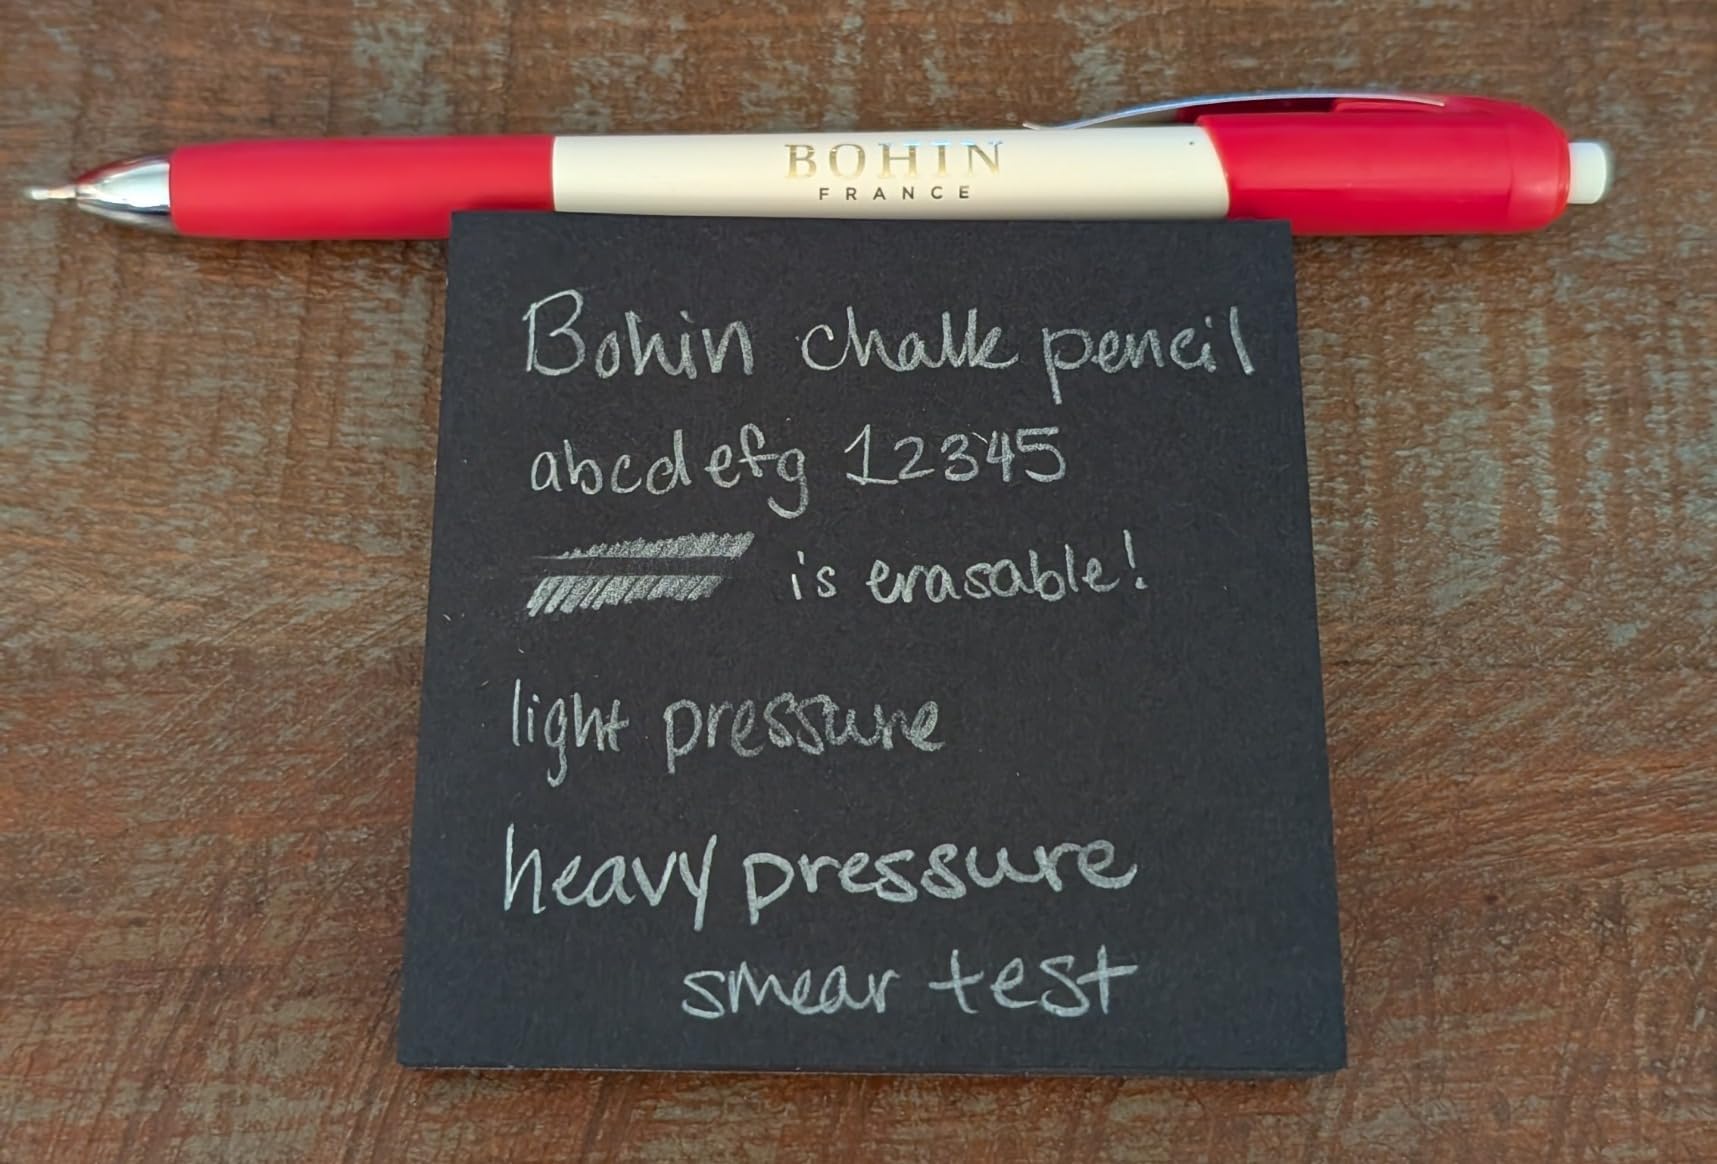 BOHIN
FRANCE
Bohin chalk pencil
abcdefg 12345
is erasable!
light pressure
heavy pressure
smear test